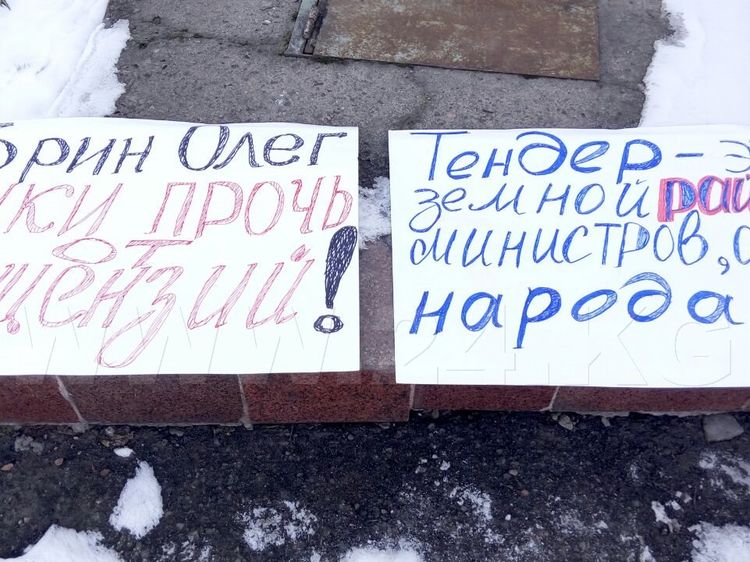 брин Олег
уки прочь
от
цензий!
Тендер – э
земной рай
министров, а
народа
WWW.24.KG